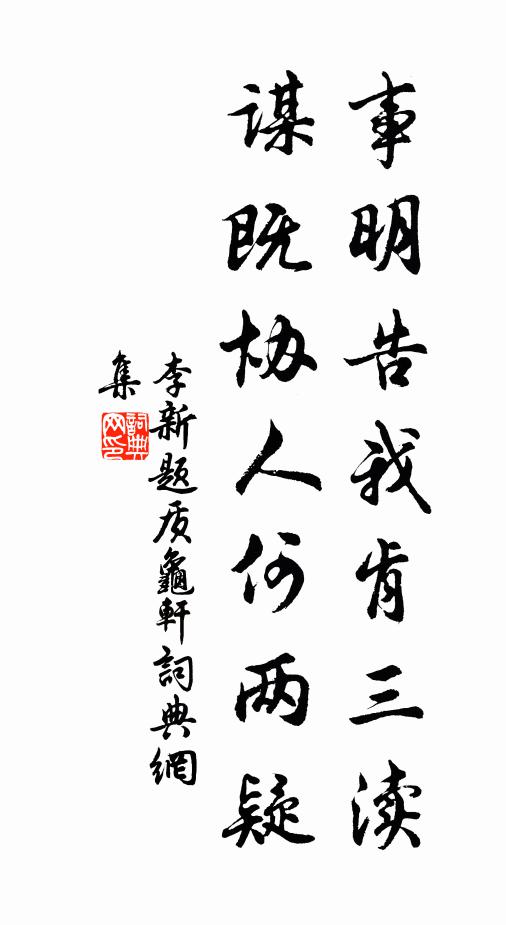 事明告我肯三渎
谋既协人何两疑
李新题质龜軒詞典網
集
詞典
网印